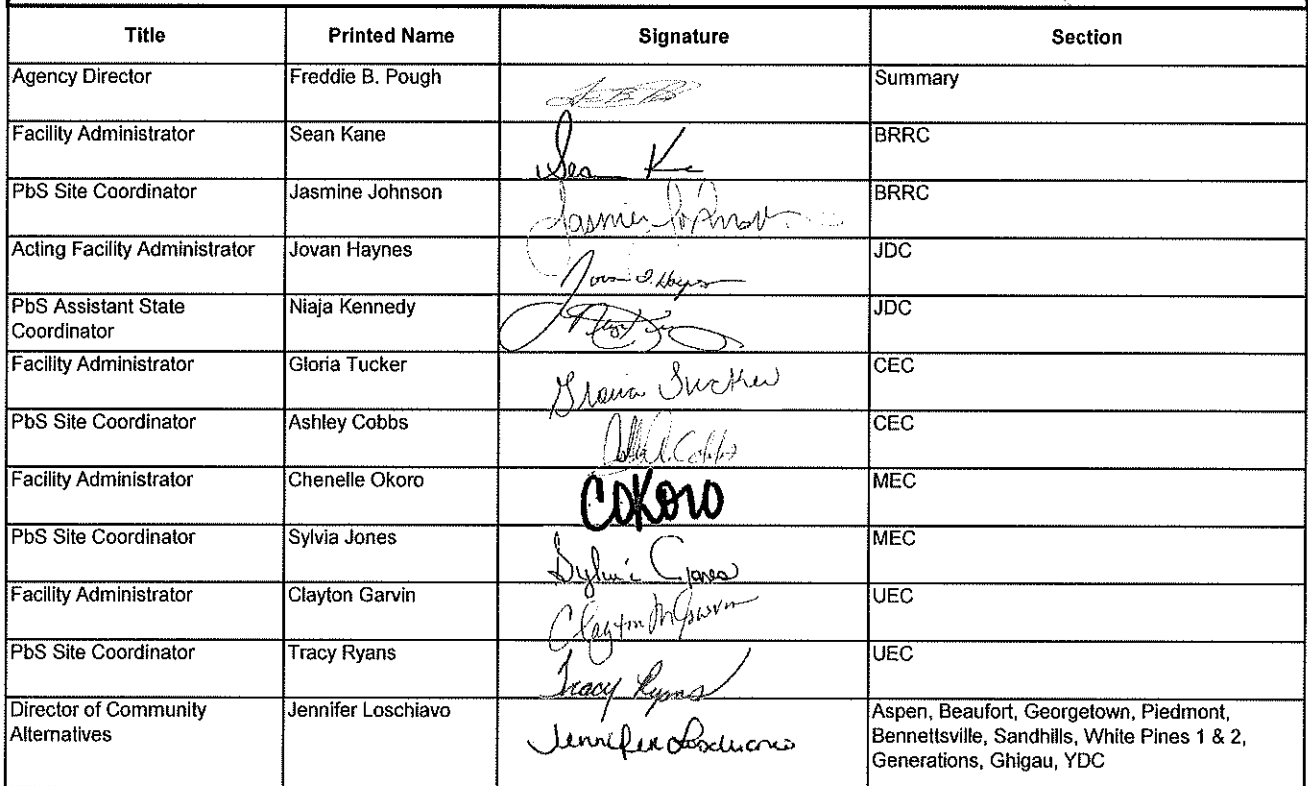 Title Printed Name Signature Section
Agency Director Freddie B. Pough Summary
Facility Administrator Sean Kane Sean K BRRC
PbS Site Coordinator Jasmine Johnson Jasmine Johnson BRRC
Acting Facility Administrator Jovan Haynes JDC
PbS Assistant State Niaja Kennedy JDC
Coordinator
Facility Administrator Gloria Tucker Gloria Tucker CEC
PbS Site Coordinator Ashley Cobbs A. Cobbs CEC
Facility Administrator Chenelle Okoro COKORO MEC
PbS Site Coordinator Sylvia Jones Sylvia Jones MEC
Facility Administrator Clayton Garvin Clayton M Garvin UEC
PbS Site Coordinator Tracy Ryans Tracy Ryans UEC
Director of Community Jennifer Loschiavo Jennifer Loschiavo Aspen, Beaufort, Georgetown, Piedmont,
Alternatives Bennettsville, Sandhills, White Pines 1 & 2,
Generations, Ghigau, YDC